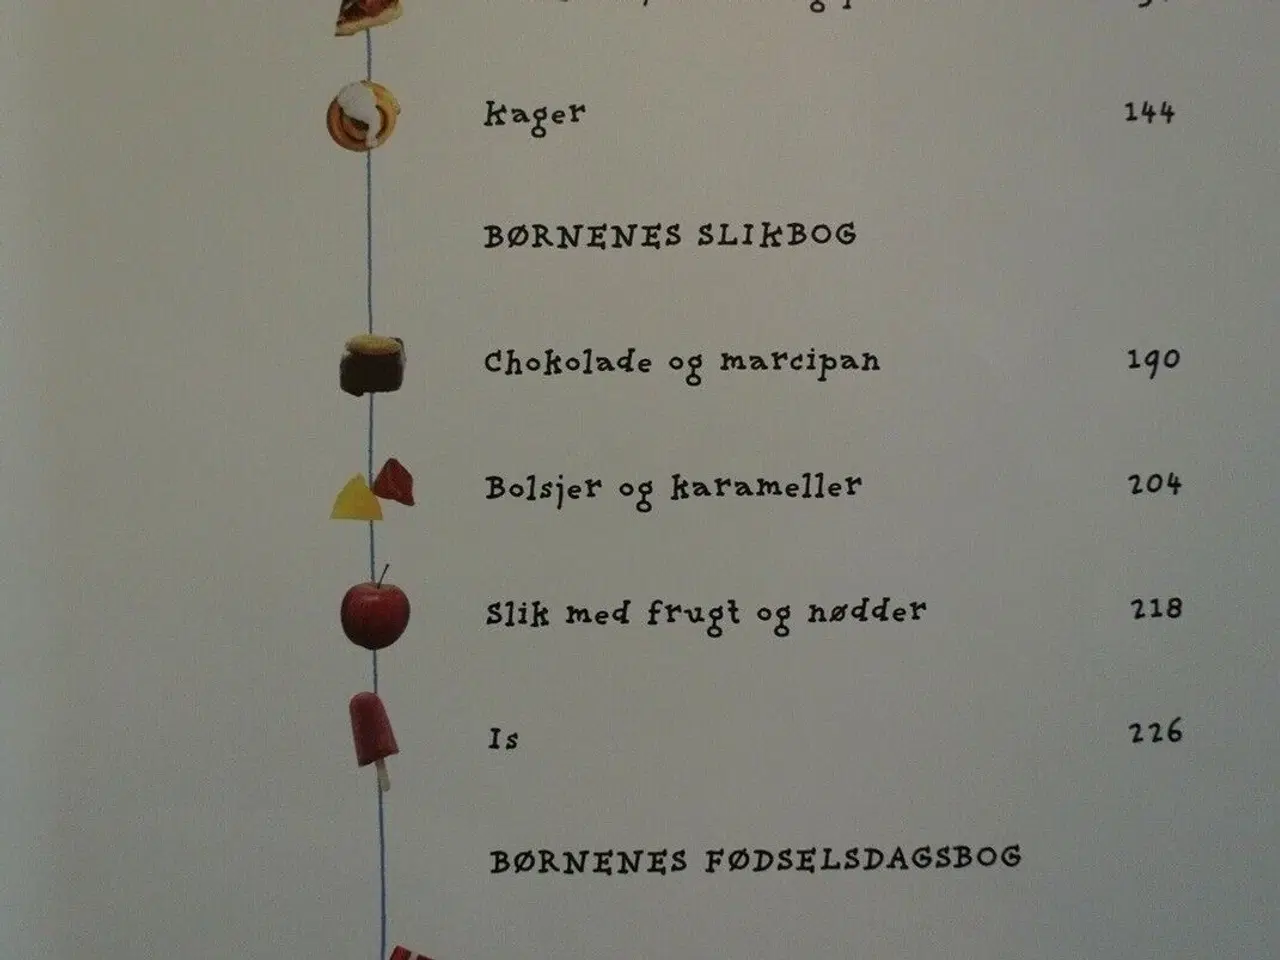 Kager 144
BØRNENES SLIKBOG
Chokolade og marcipan 190
Bolsjer og karameller 204
Slik med frugt og nødder 218
Is 226
BØRNENES FØDSELSDAGSBOG